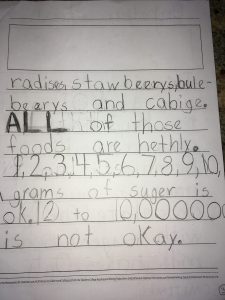 radises, stawbeerys, bule-
beerys and cabige.
ALL of those
foods are hethly.
1,2,3,4,5,6,7,8,9,10,
grams of suger is
ok. 12 to 10,00000
is not okay.